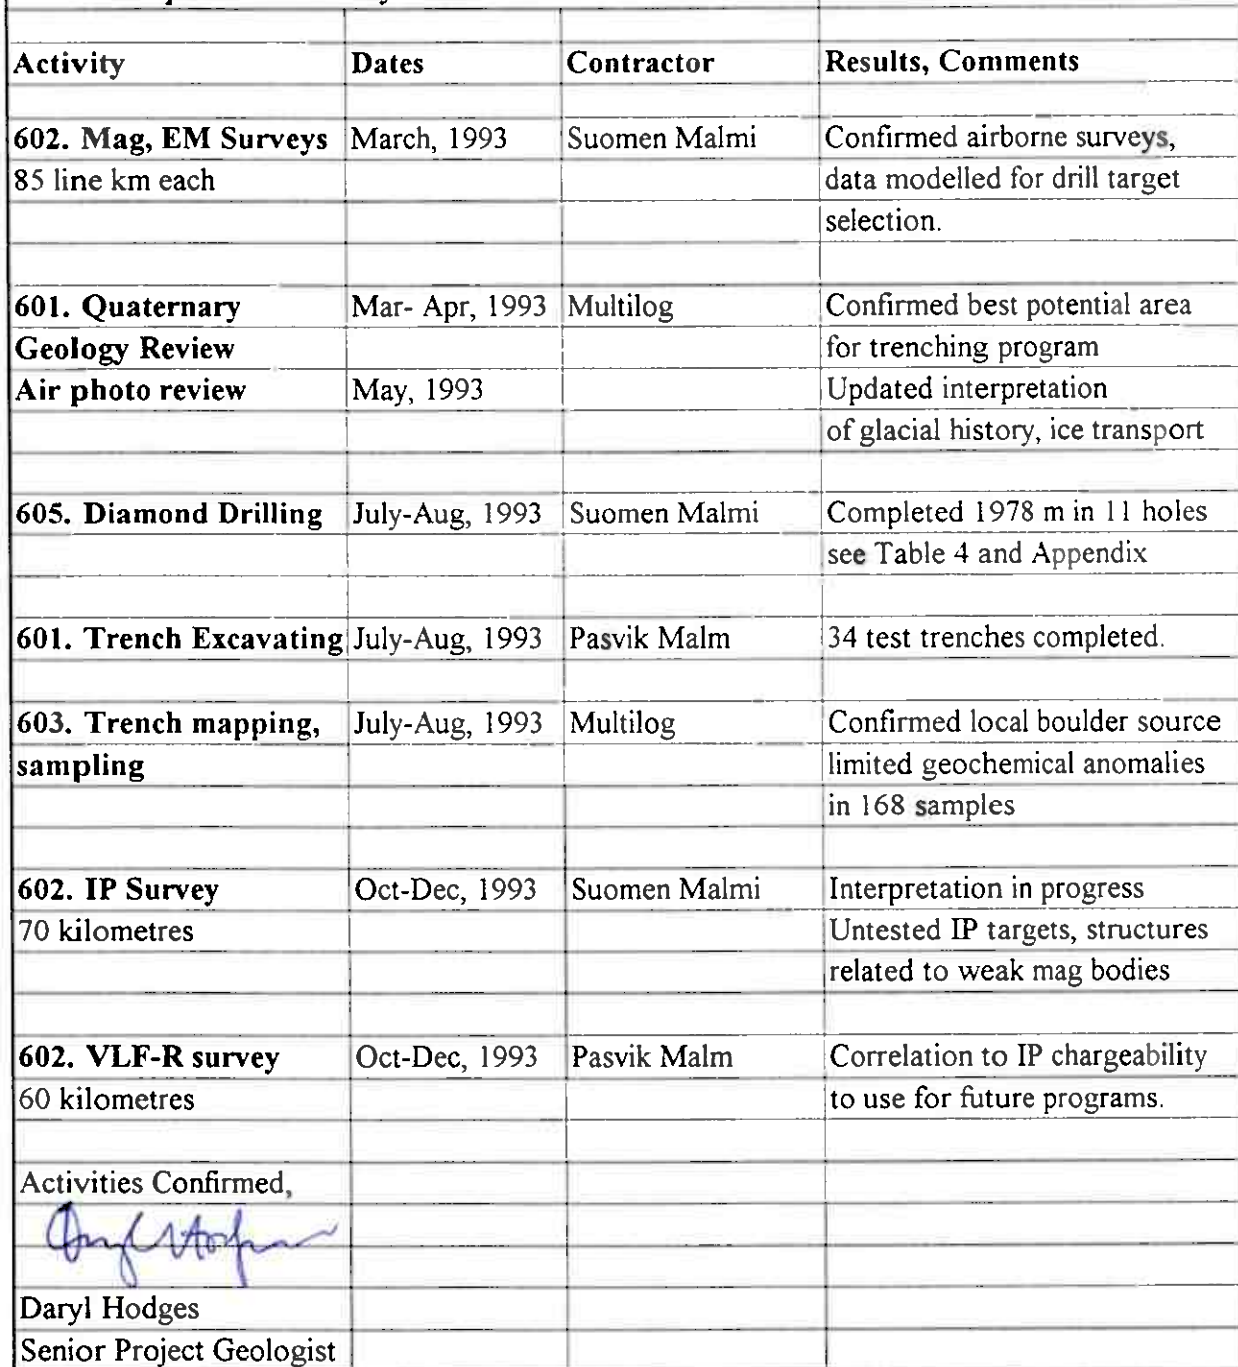 Activity Dates Contractor Results, Comments
602. Mag, EM Surveys March, 1993 Suomen Malmi Confirmed airborne surveys,
85 line km each data modelled for drill target
selection.
601. Quaternary Mar- Apr, 1993 Multilog Confirmed best potential area
Geology Review for trenching program
Air photo review May, 1993 Updated interpretation
of glacial history, ice transport
605. Diamond Drilling July-Aug, 1993 Suomen Malmi Completed 1978 m in 11 holes
see Table 4 and Appendix
601. Trench Excavating July-Aug, 1993 Pasvik Malm 34 test trenches completed.
603. Trench mapping, July-Aug, 1993 Multilog Confirmed local boulder source
sampling limited geochemical anomalies
in 168 samples
602. IP Survey Oct-Dec, 1993 Suomen Malmi Interpretation in progress
70 kilometres Untested IP targets, structures
related to weak mag bodies
602. VLF-R survey Oct-Dec, 1993 Pasvik Malm Correlation to IP chargeability
60 kilometres to use for future programs.
Activities Confirmed,
Daryl Hodges
Senior Project Geologist